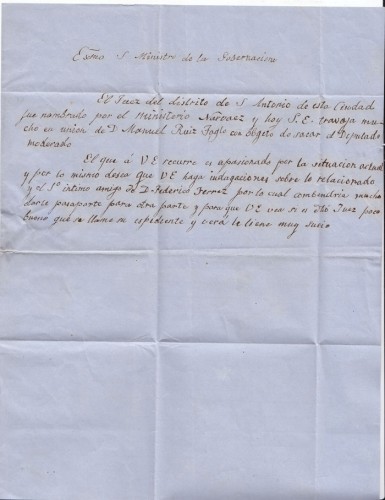 Exmo S Ministro de la Gobernacion
El Juez del distrito de S Antonio de esta Ciudad
fue nombrado por el Ministerio Narvaez y hoy S.E. travaja mu
cho en union de D Manuel Ruiz Tagle con objeto de sacar el Deputado
moderado
El que á VE recurre es apasionado por la situacion actual
y por lo mismo desea que VE haga indagaciones sobre lo relacionado
y el Sº intimo amigo de D Federico Ferrez por lo cual combendria mucho
darse pasaporte para otra parte y para que VE vea si es dho Juez poco
bueno que se llame su espediente y verá le tiene muy sucio